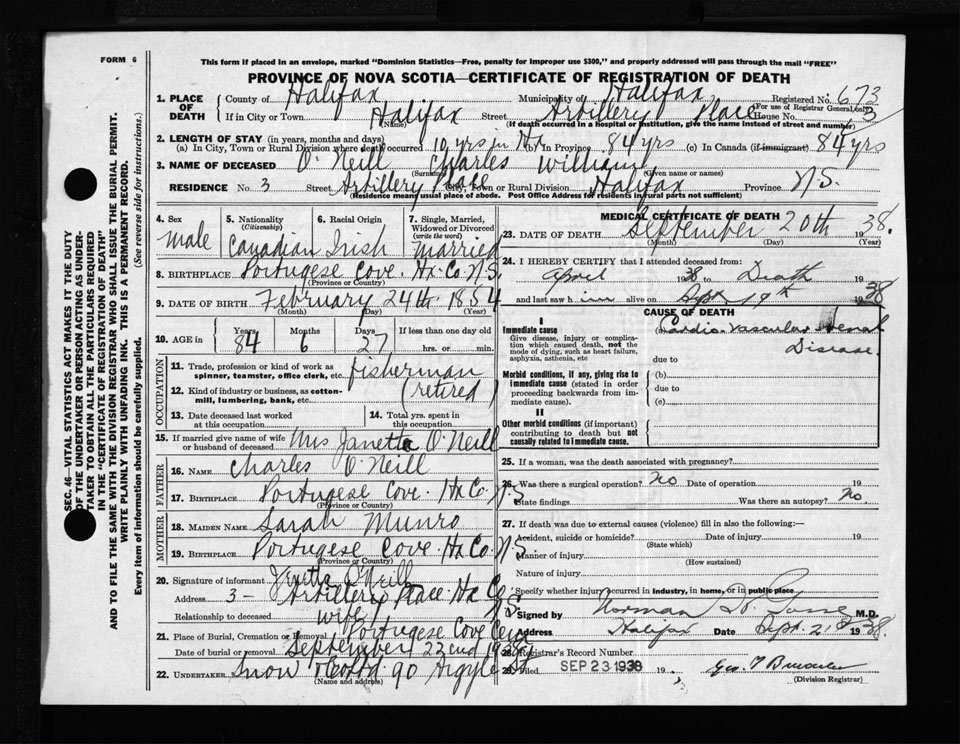 FORM 6
This form if placed in an envelope, marked "Dominion Statistics—Free, penalty for improper use $300," and properly addressed will pass through the mail "FREE"
PROVINCE OF NOVA SCOTIA—CERTIFICATE OF REGISTRATION OF DEATH
1. PLACE OF DEATH
County of Halifax Municipality of Halifax Registered No. 673
(For use of Registrar General only)
If in City or Town Halifax Street Artillery Place House No. 3
(Name) (If death occurred in a hospital or institution, give the name instead of street and number)
2. LENGTH OF STAY (in years, months and days)
(a) In City, Town or Rural Division where death occurred 10 yrs in Hx (b) In Province 84 yrs (c) In Canada (if immigrant) 84 yrs
3. NAME OF DECEASED O'Neill Charles William
(Surname) (Given name or names)
RESIDENCE No. 3 Street Artillery Place City, Town or Rural Division Halifax Province N.S.
(Residence means usual place of abode. Post Office Address for residents in rural parts not sufficient)
4. Sex Male
5. Nationality (Citizenship) Canadian
6. Racial Origin Irish
7. Single, Married, Widowed or Divorced (write the word) Married
8. BIRTHPLACE Portugese Cove. Hx. Co. N.S.
(Province or Country)
9. DATE OF BIRTH February 24th 1854
(Month) (Day) (Year)
10. AGE in Years 84 Months 6 Days 27 If less than one day old hrs. or min.
OCCUPATION
11. Trade, profession or kind of work as spinner, teamster, office clerk, etc. fisherman
12. Kind of industry or business, as cotton-mill, lumbering, bank, etc. (retired)
13. Date deceased last worked at this occupation
14. Total yrs. spent in this occupation
15. If married give name of wife or husband of deceased Mrs Janetta O'Neill
FATHER
16. NAME Charles O'Neill
17. BIRTHPLACE Portugese Cove. Hx Co. N.S
(Province or Country)
MOTHER
18. MAIDEN NAME Sarah Munro
19. BIRTHPLACE Portugese Cove. Hx Co. N.S
(Province or Country)
20. Signature of informant O'Neill
Address 3 - Artillery Place Hx Co N.S.
Relationship to deceased wife
21. Place of Burial, Cremation or Removal Portugese Cove Cem
Date of burial or removal September 22nd 1938
22. UNDERTAKER Snow 90 Argyle St
(Name and address)
MEDICAL CERTIFICATE OF DEATH
23. DATE OF DEATH September 20th 1938.
(Month) (Day) (Year)
24. I HEREBY CERTIFY that I attended deceased from:
April 1938 to Death 19
and last saw him alive on Sept 19th 1938
CAUSE OF DEATH
I
Immediate cause
Give disease, injury or complication which caused death, not the mode of dying, such as heart failure, asphyxia, asthenia, etc
(a) Cardio-Vascular Renal Disease.
due to
Morbid conditions, if any, giving rise to immediate cause (stated in order proceeding backwards from immediate cause).
(b)
due to
(c)
II
Other morbid conditions (if important) contributing to death but not causally related to immediate cause.
25. If a woman, was the death associated with pregnancy?
26. Was there a surgical operation? No Date of operation 19
State findings Was there an autopsy? No.
27. If death was due to external causes (violence) fill in also the following:—
Accident, suicide or homicide? Date of injury 19
(State which)
Manner of injury
(How sustained)
Nature of injury
Specify whether injury occurred in industry, in home, or in public place
Signed by Norman H. Gosse M.D.
Address Halifax Date Sept. 21st 1938.
28. Registrar's Record Number
29. Filed SEP 23 1938 19
(Division Registrar)
SEC. 46—VITAL STATISTICS ACT MAKES IT THE DUTY
OF THE UNDERTAKER OR PERSON ACTING AS UNDER-
TAKER TO OBTAIN ALL THE PARTICULARS REQUIRED
IN THE "CERTIFICATE OF REGISTRATION OF DEATH"
AND TO FILE THE SAME WITH THE DIVISION REGISTRAR WHO SHALL ISSUE THE BURIAL PERMIT.
WRITE PLAINLY WITH UNFADING INK. THIS IS A PERMANENT RECORD.
Every item of information should be carefully supplied. (See reverse side for instructions.)